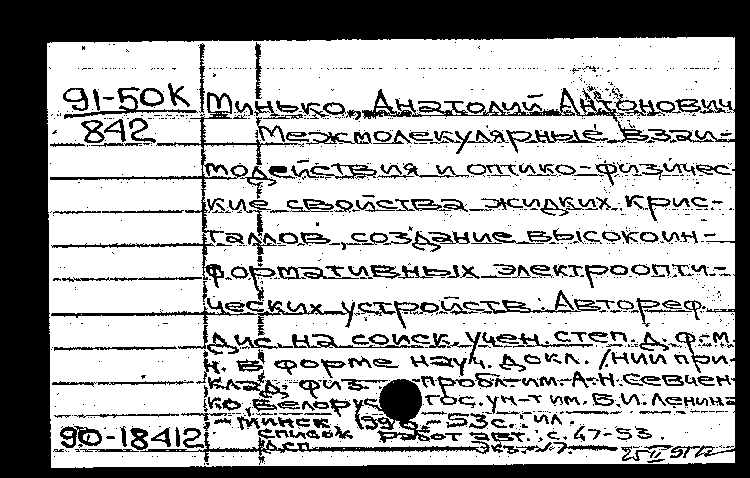 91-50К Минько, Анатолий Антонович
842 Межмолекулярные взаи-
модействия и оптико-физичес-
кие свойства жидких крис-
таллов, создание высокоин-
формативных электроопти-
ческих устройств: Автореф.
дис. на соиск. учен. степ. д. ф.-м.
н. в форме науч. докл. /НИИ при-
клад. физ. пробл. им. А.Н. Севчен-
ко, Белорус. гос. ун-т им. В.И. Ленина
- Минск, 1990. - 53 с.: ил.
90-18412 Список работ авт.: с. 47-53.
Д.С.П.